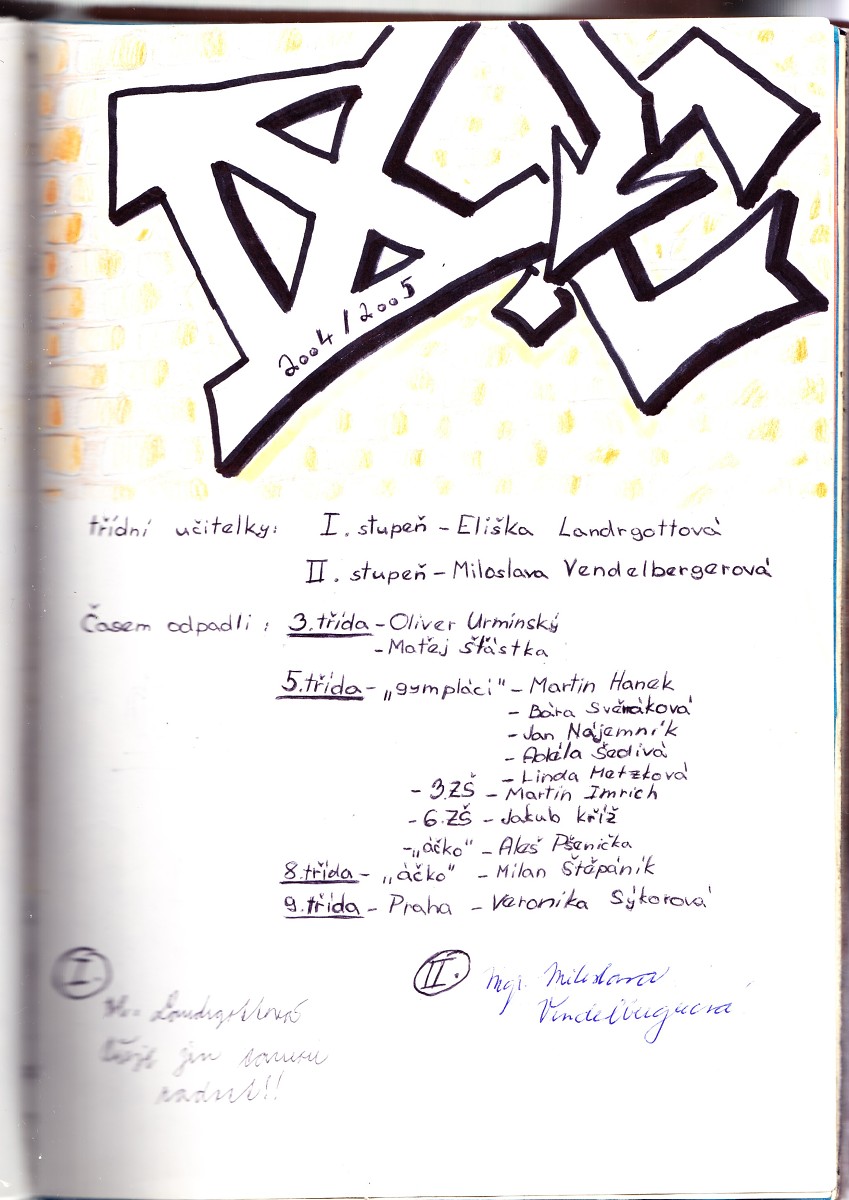 IX.B
2004/2005
třídní učitelky: I. stupeň - Eliška Landrgottová
II. stupeň - Miloslava Vendelbergerová
Časem odpadli: 3.třída - Oliver Urmínský
- Matěj Šťástka
5.třída - „gympláci" - Martin Hanek
- Bára Svěráková
- Jan Nájemník
- Adéla Šedivá
- Linda Metzková
- 3.ZŠ - Martin Imrich
- 6.ZŠ - Jakub Kříž
- „áčko" - Aleš Pšenička
8.třída - „áčko" - Milan Štěpáník
9.třída - Praha - Veronika Sýkorová
I. II. Mgr. Miloslava
Landrgottová Vendelbergerová
radost!!